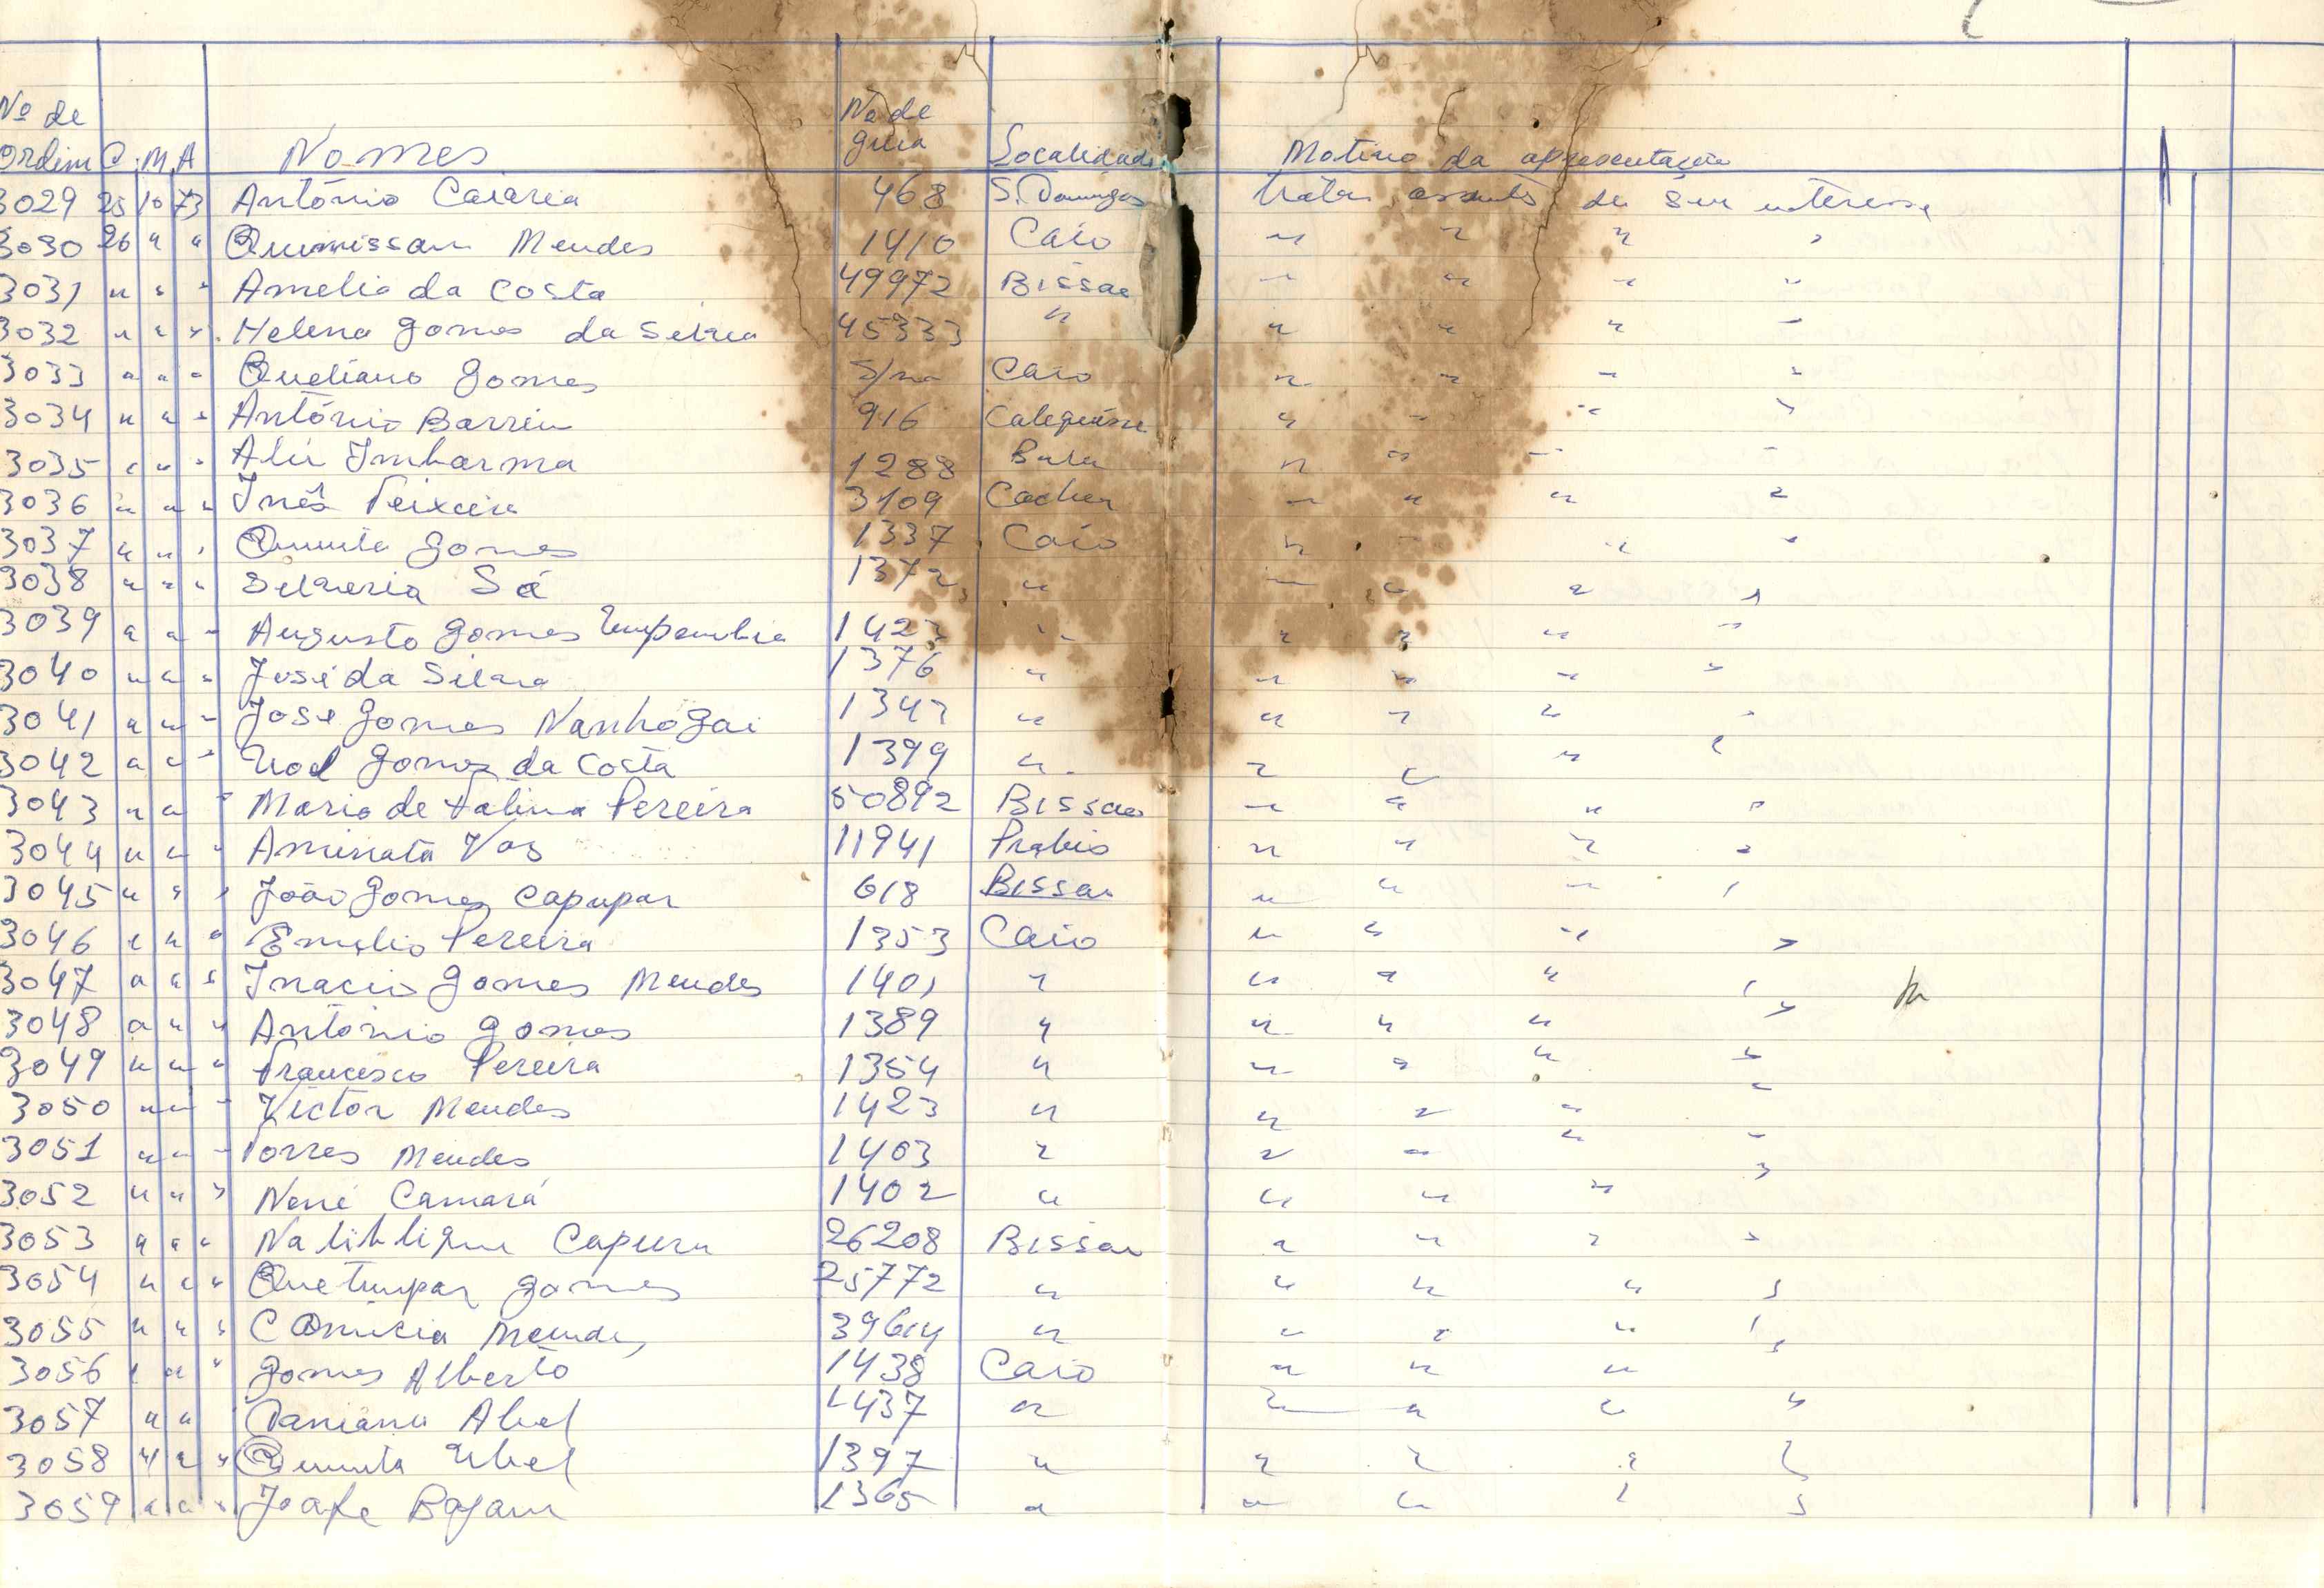 Nº de Nº de
Ordem D. M. A Nomes guia Localidade Motivo da apresentação
3029 25 10 73 António 468 S. Domingos tratar assunto de seu interesse
3030 26 " " Quimissam Mendes 1410 Caio " " " "
3031 " " " Amelia da Costa 49972 Bissau " " " "
3032 " " " Helena Gomes da Silva 45333 " " " " "
3033 " " " Gomes S/nº Caio " " " "
3034 " " " António Barreto 916 Calequisse " " " "
3035 " " " 1288 Bula " " " "
3036 " " " Inês Teixeira 3109 Cacheu " " " "
3037 " " " Quinta Gomes 1337 Caio " " " "
3038 " " " Silveria Sá 1372 " " " " "
3039 " " " Augusto Gomes 1423 " " " " "
3040 " " " José da Silva 1376 " " " " "
3041 " " " José Gomes Nanhogai 1343 " " " " "
3042 " " " Gomes da Costa 1399 " " " " "
3043 " " " Maria de Fatima Pereira 50892 Bissau " " " "
3044 " " " Aminata Vaz 11941 Prabis " " " "
3045 " " " João Gomes Capupar 618 Bissau " " " "
3046 " " " Emilio Pereira 1353 Caio " " " "
3047 " " " Inacio Gomes Mendes 1401 " " " " "
3048 " " " António Gomes 1389 " " " " "
3049 " " " Francisco Pereira 1354 " " " " "
3050 " " " Victor Mendes 1423 " " " " "
3051 " " " Torres Mendes 1403 " " " " "
3052 " " " Nené Camará 1402 " " " " "
3053 " " " 26208 Bissau " " " "
3054 " " " Quetumpar Gomes 25772 " " " " "
3055 " " " Mendes 39614 " " " " "
3056 " " " Gomes Alberto 1438 Caio " " " "
3057 " " Abel 1437 " " " " "
3058 " " " Quinta Ubel 1397 " " " " "
3059 " " " 1365 " " " " "